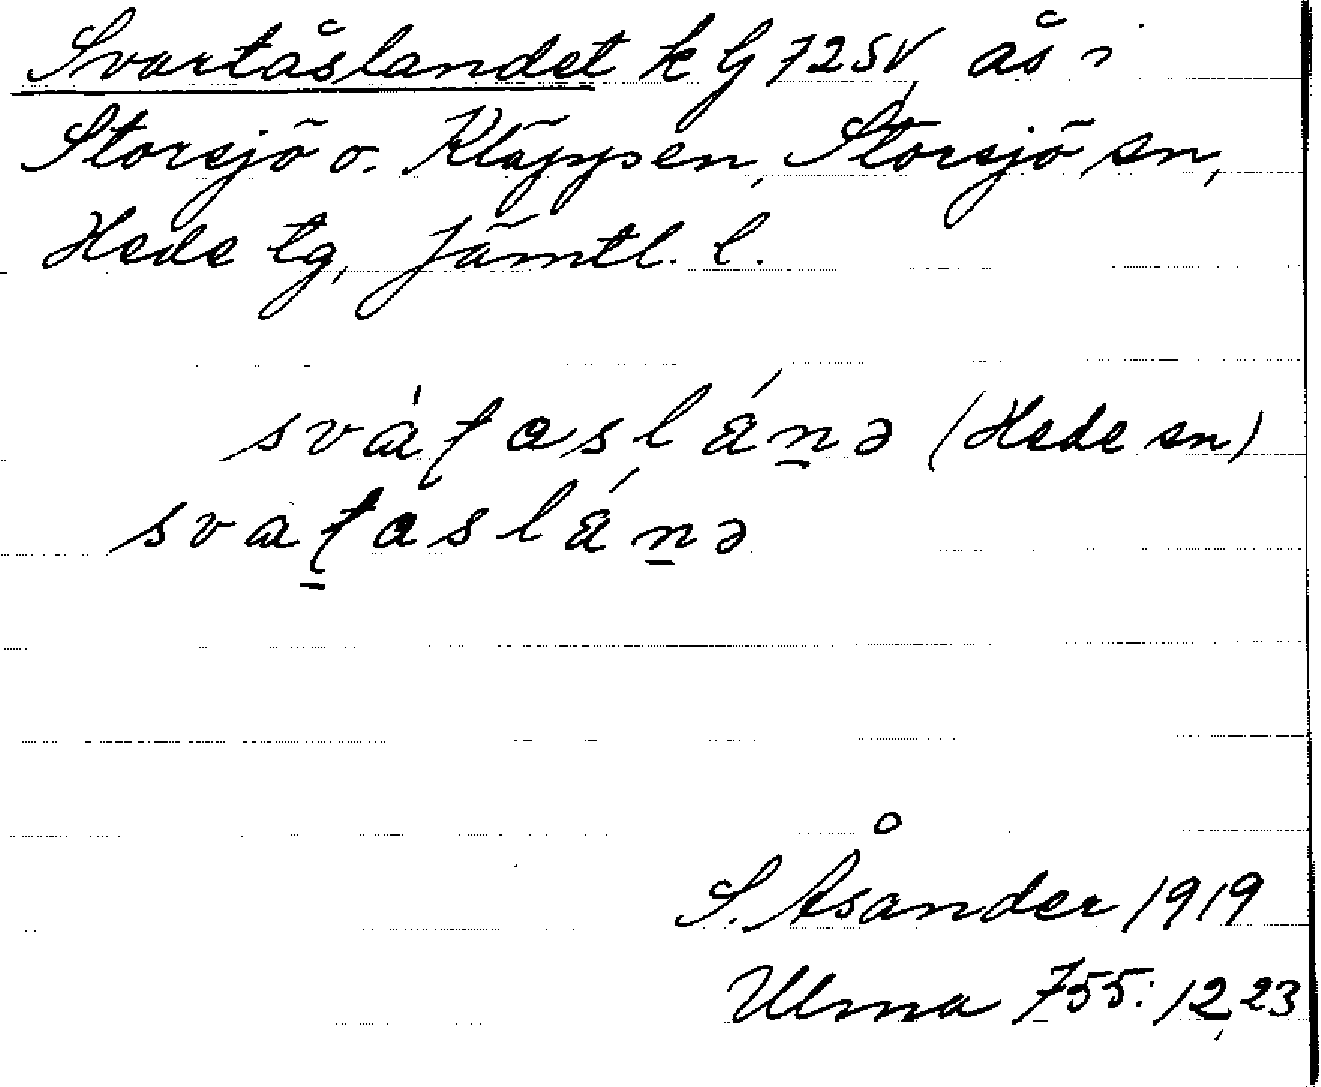 Svartåslandet k G 72SV, ås i
Storsjö o. Kläppen, Storsjö sn,
Hede tg, Jämtl. l.
(Hede sn)
S. Åsander 1919
Ulma 755: 12, 23